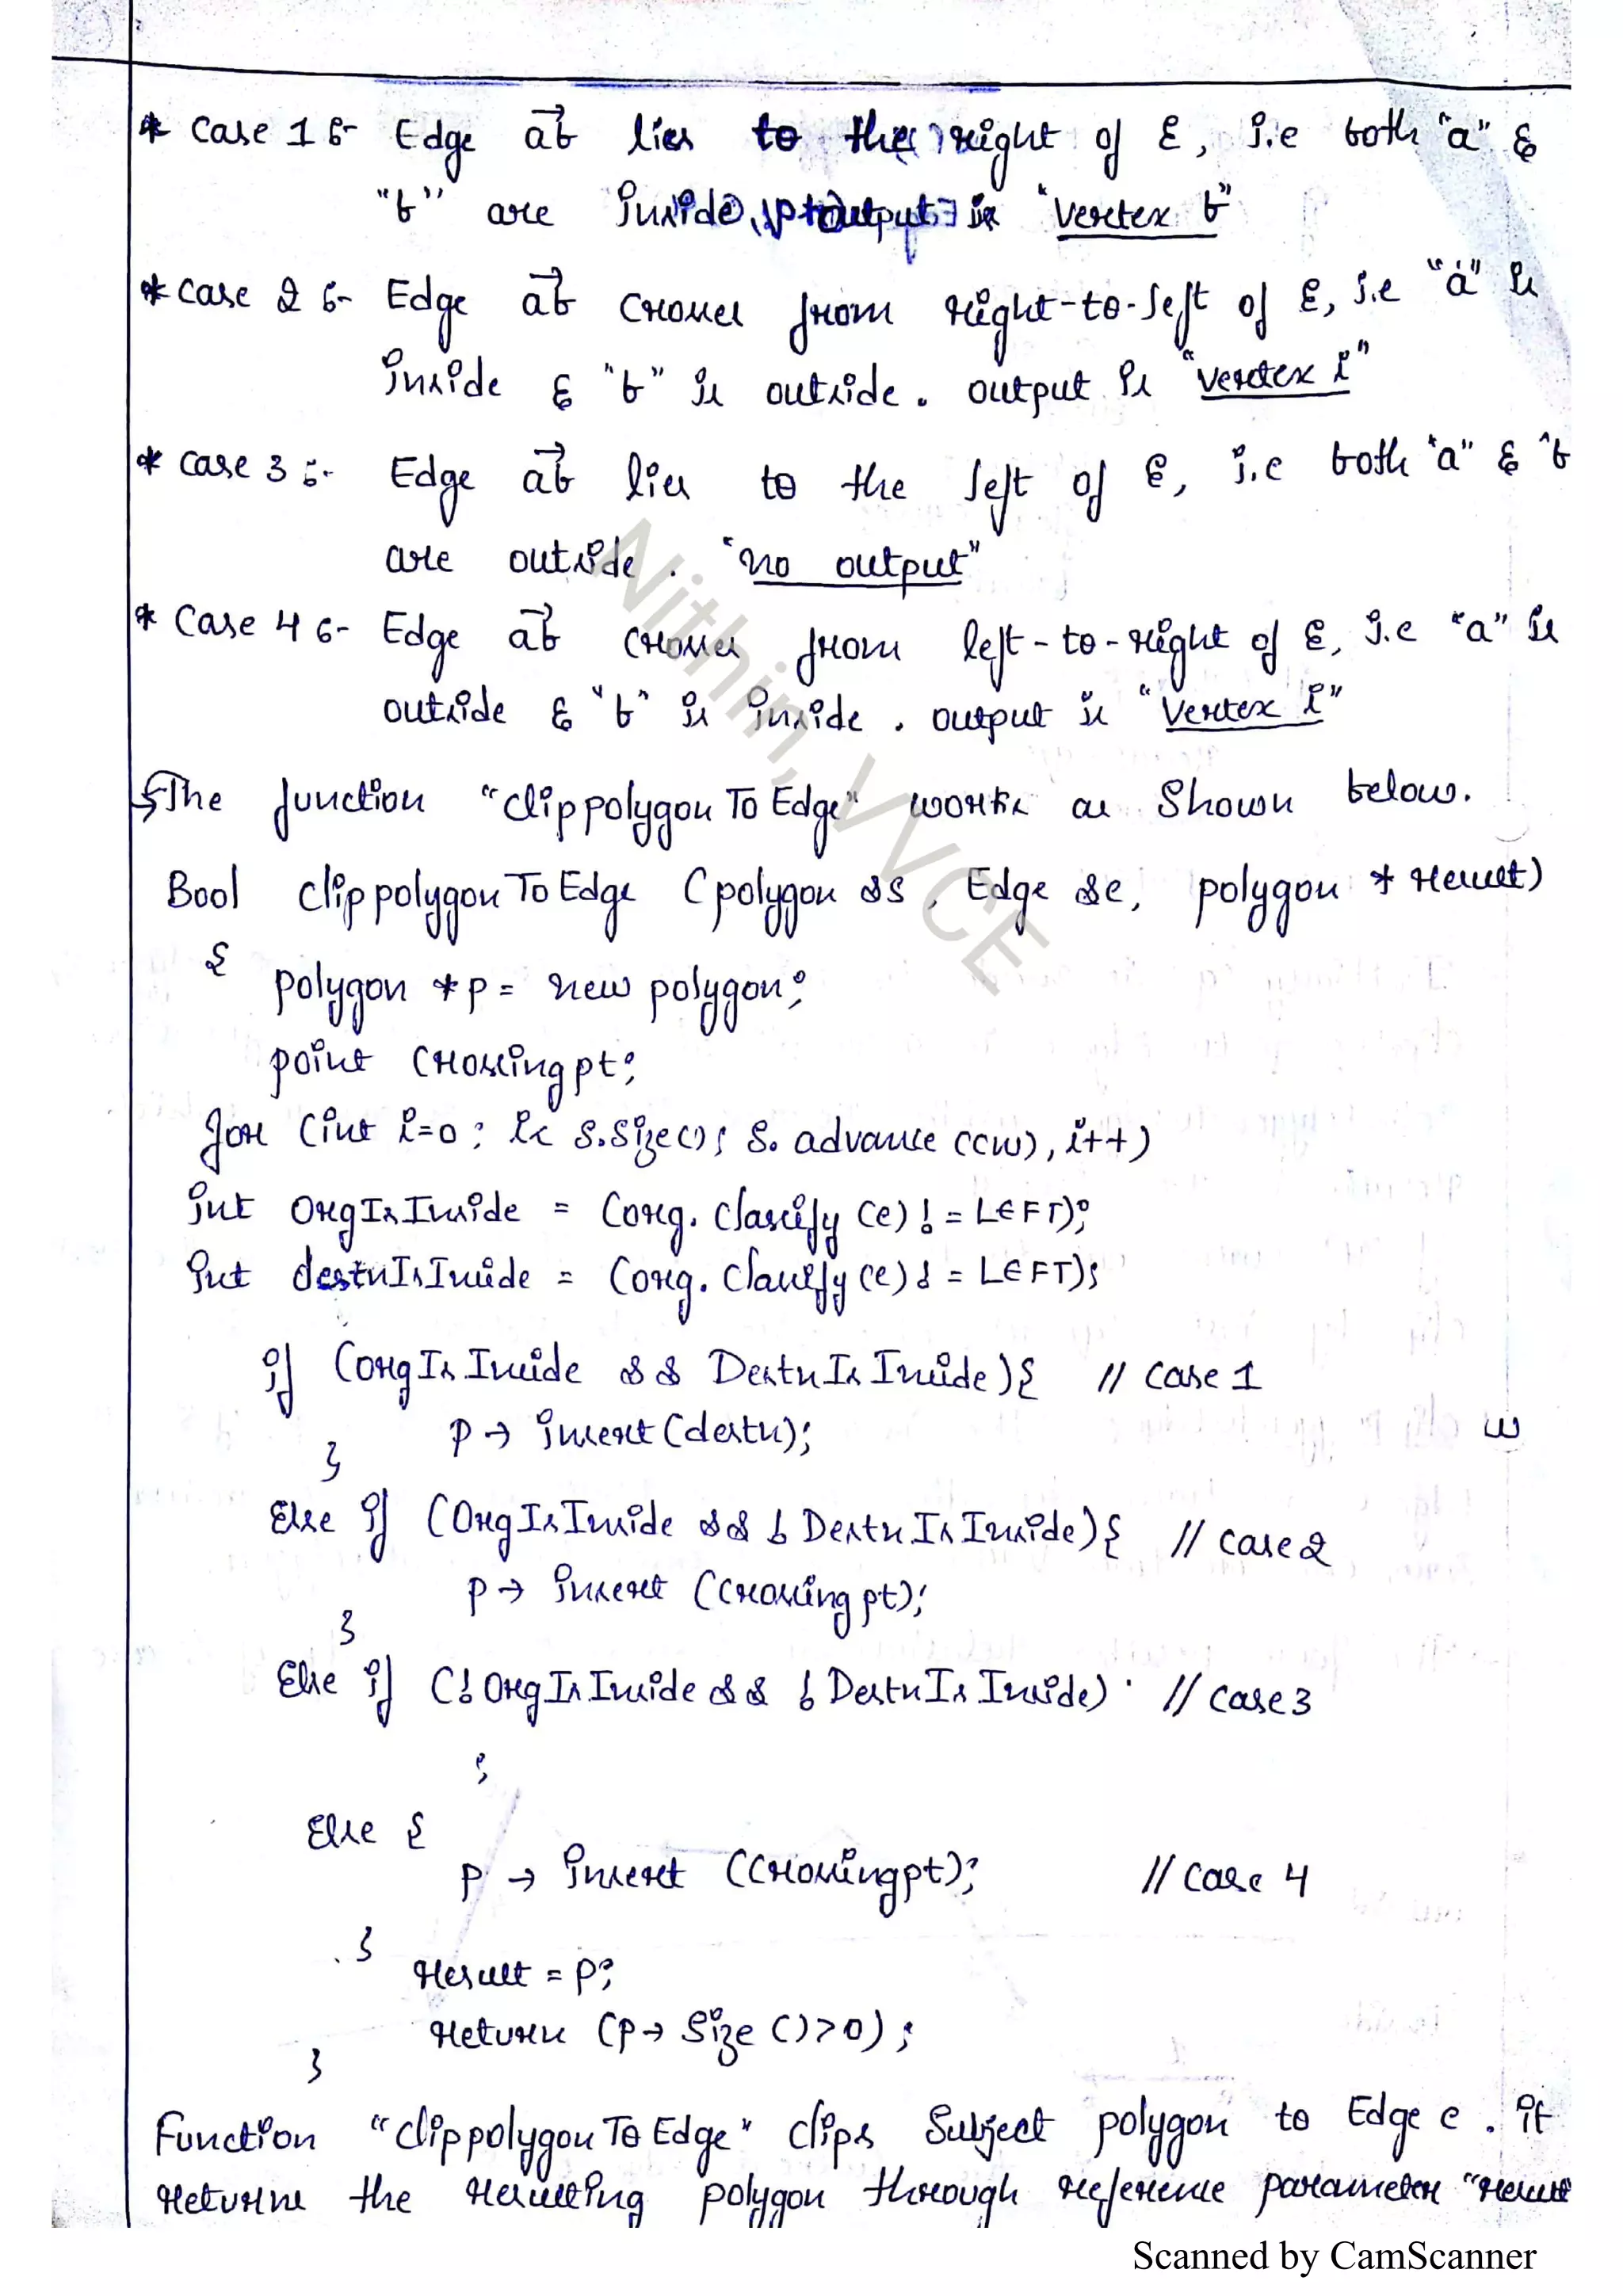 * Case 1 :- Edge ab lies to the right of E, i.e both "a" &
"b" are inside, output is "vertex b"
* Case 2 :- Edge ab crosses from right-to-left of E, i.e "a" is
inside & "b" is outside. output is "vertex i"
* Case 3 :- Edge ab lies to the left of E, i.e both "a" & "b
are outside. "no output"
* Case 4 :- Edge ab crosses from left-to-right of E, i.e "a" is
outside & "b" is inside. output is "vertex i"
→The function "clippolygonToEdge" works as shown below.
Bool clippolygonToEdge (polygon &S, Edge &e, polygon * result)
{
polygon *p = new polygon;
point crossingpt;
for (int i=0; i< S.size(); S.advance(cw), i++)
int orgIsInside = (org.classify(e) != LEFT);
int destnIsInside = (org.classify(e) != LEFT);
if (orgIsInside && DestnIsInside){ // case 1
p → insert(destn);
}
Else if (OrgIsInside && !DestnIsInside){ // case 2
p → insert (crossingpt);
}
Else if (!OrgIsInside && !DestnIsInside) // case 3
;
Else {
p → insert (crossingpt); // case 4
}
result = p;
return (p → size()>0);
}
Function "clippolygonToEdge" clips subject polygon to Edge e. it
returns the resulting polygon through reference parameter "result
Nithin, VVCE
Scanned by CamScanner